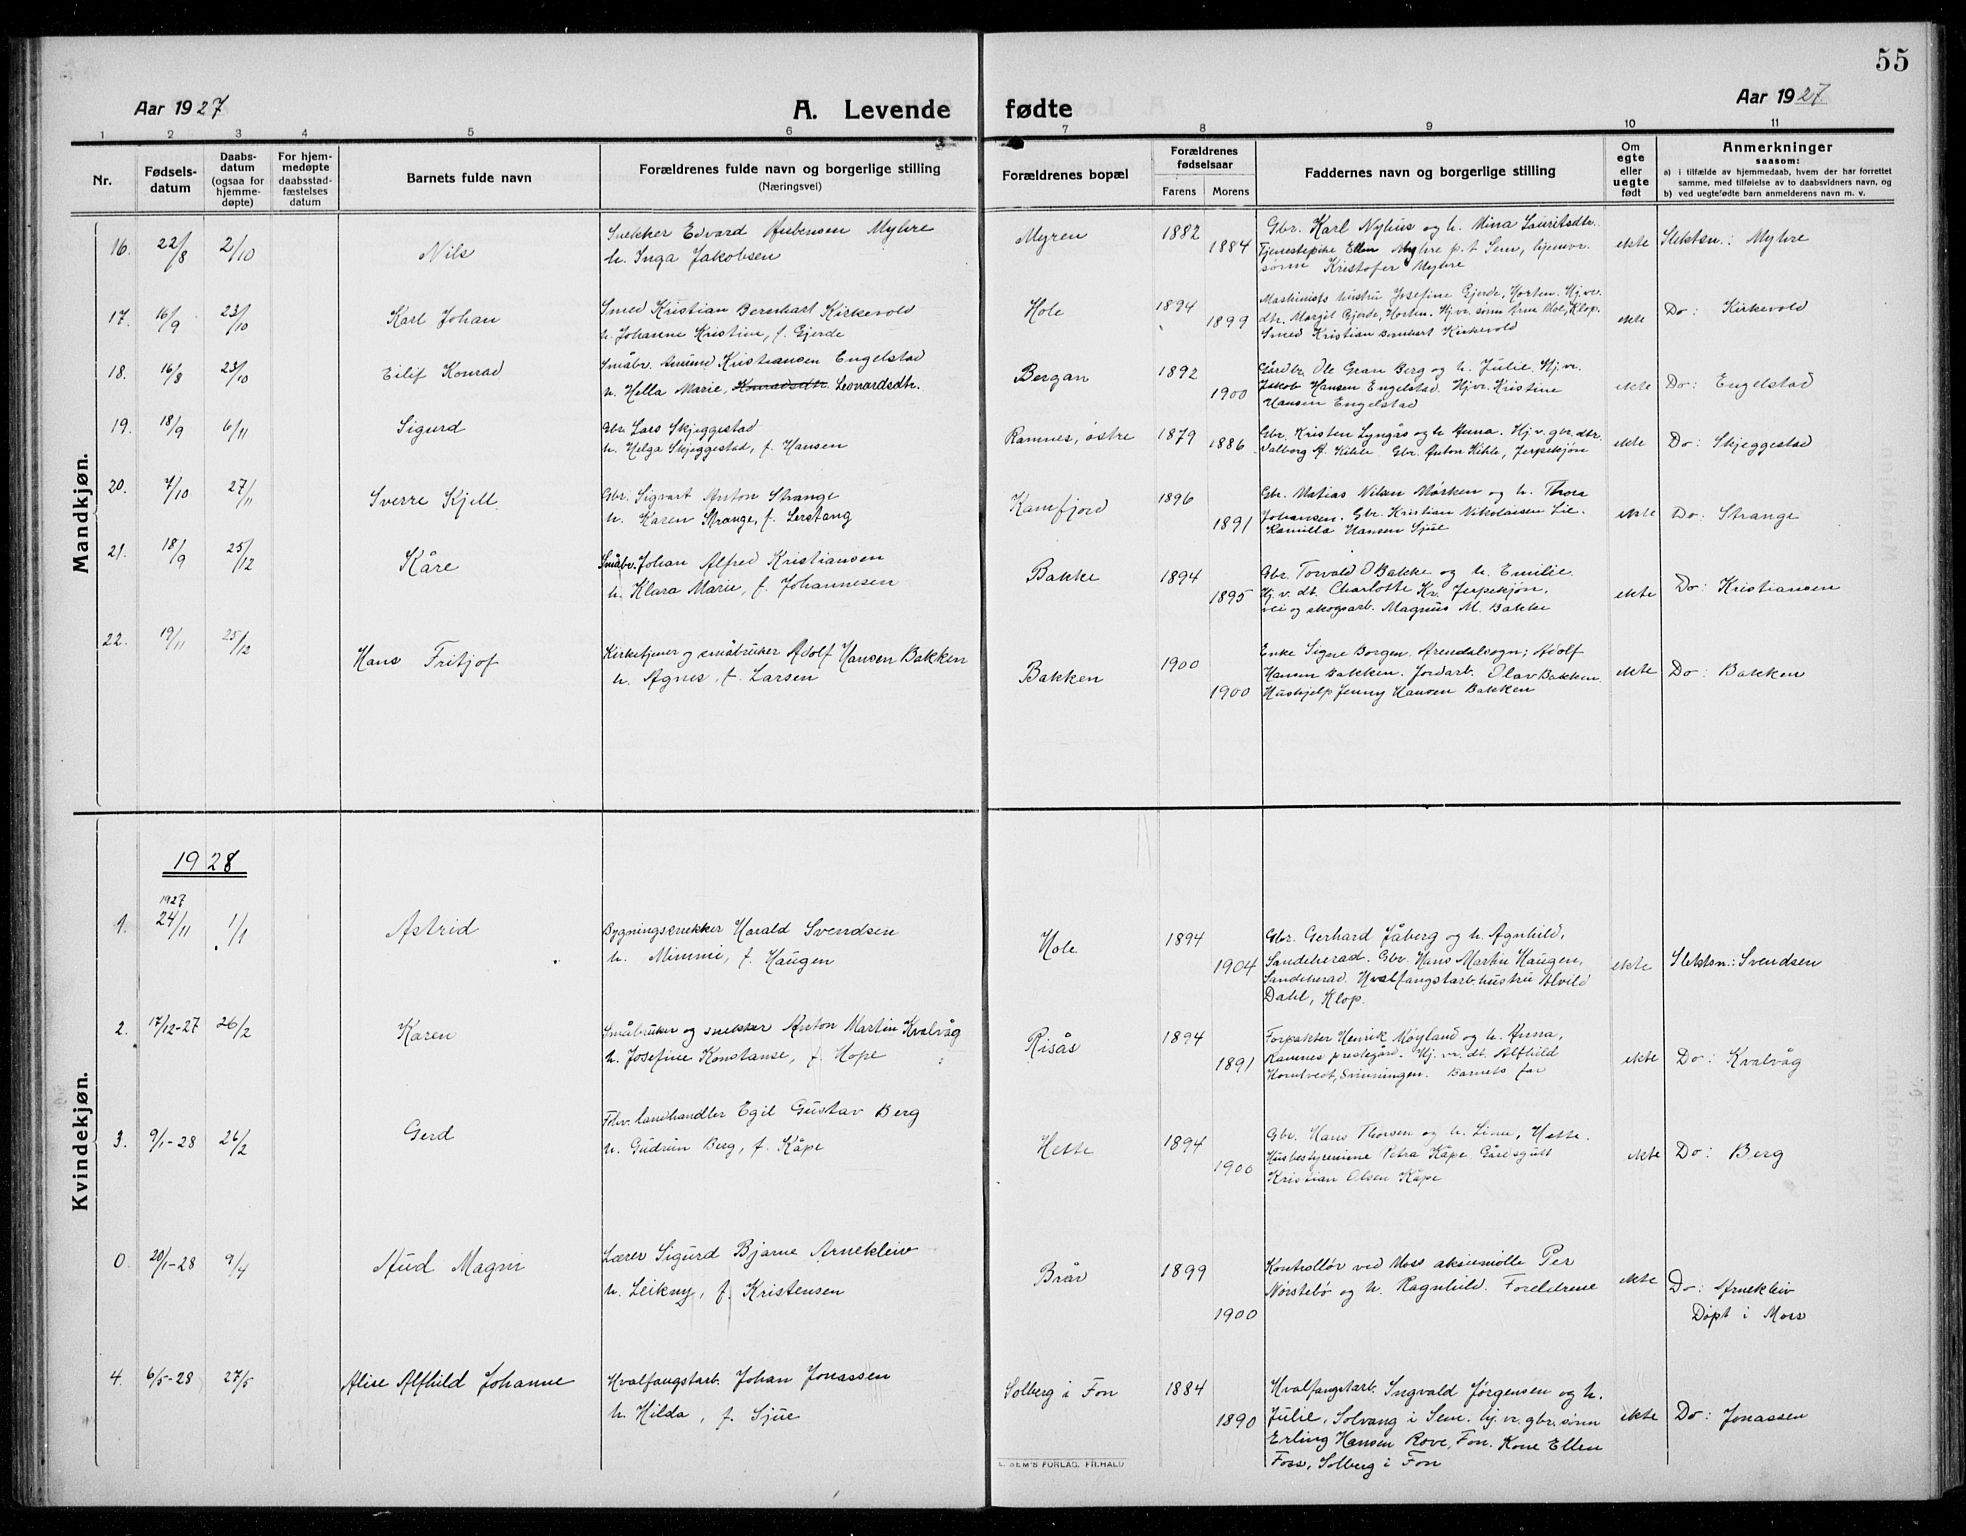 55
Aar 1927
A. Levende fødte
Aar 1927.
1 2 3 4 5 6 7 8 9 10 11
Nr.
Fødsels-
datum
Daabs-
datum
(ogsaa for
hjemme-
døpte)
For hjem-
medøpte
daabsstad-
fæstelses
datum
Barnets fulde navn
Forældrenes fulde navn og borgerlige stilling
(Næringsvei)
Forældrenes bopæl
Forældrenes
fødselsaar
Farens Morens
Faddernes navn og borgerlige stilling
Om
egte
eller
uegte
født
Anmerkninger
saasom:
a) i tilfælde av hjemmedaab, hvem der har forrettet
samme, med tilføielse av to daabsvidners navn, og
b) ved uegtefødte barn anmelderens navn m. v.
Mandkjøn.
16. 22/8 2/10 Nils
Snekker Edvard Aubensen Myhre
h. Inga Jakobsen
Myren 1882 1884
Gbr. Karl Nyhus og h. Mina Lauritsdtr.
Tjenestepike Ellen Myhre p. t. Sem, hjemv.
sønn Kristofer Myhre
ekte Slektsn: Myhre
17. 16/9 23/10 Karl Johan
Smed Kristian Bernhart Kirkevold
h. Johanne Kristine, f. Gjerde
Hole 1894 1899
Maskinists hustru Josefine Gjerde, Horten. Hj.v.
dtr. Margit Gjerde, Horten. Hj.v. sønn Arne Hole, Klop.
Smed Kristian Bernhart Kirkevold
ekte Do: Kirkevold
18. 16/8 23/10 Eilif Konrad
Småbr. Amund Kristiansen Engelstad
h. Hella Marie, Konradsdtr. Leonardsdtr.
Bergan 1892 1900
Gårdbr. Ole Gran Berg og h. Julie. Hj.vr.
Jakob Hansen Engelstad. Hj.vr. Kristine
Hansen Engelstad
ekte Do: Engelstad
19. 18/9 6/11 Sigurd
Gbr. Lars Skjeggestad
h. Helga Skjeggestad, f. Hansen
Ramnes, østre 1879 1886
Gbr. Kristen Lyngås og h. Anna. Hj.v. gbr. dtr.
Valborg A. Kihle Gbr. Anton Kihle, Jerpekjøn
ekte Do: Skjeggestad
20. 7/10 27/11 Sverre Kjell
Gbr. Sigvart Anton Strange
h. Karen Strange, f. Lerstang
Kamfjord 1896 1891
Gbr. Matias Nilsen Mørken og h. Thora
Johansen. Gbr. Kristian Nikolaisen Lie
Kamilla Hansen Sjue
ekte Do: Strange
21. 18/9 25/12 Kåre
Småbr. Johan Alfred Kristiansen
h. Klara Marie, f. Johannesen
Bakke 1894 1895
Gbr. Torvald O Bakke og h. Emilie.
Hj.v. dt. Charlotte Kr. Jerpekjøn,
vei og skogsarb. Magnus M. Bakke
ekte Do: Kristiansen
22. 19/11 25/12 Hans Fritjof
Kirketjener og småbruker Adolf Hansen Bakken
h. Agnes, f. Larsen
Bakken 1900 1900
Enke Signe Borgen, Arendalsogn; Adolf
Hansen Bakken. Jordarb. Olav Bakken
Hushjelp Jenny Hansen Bakken
ekte Do: Bakken
Kvindekjøn.
1928
1927
1. 24/11 1/1 Astrid
Bygningssnekker Harald Svendsen
h. Mimmi, f. Haugen
Hole 1894 1904
Gbr. Gerhard Jåberg og h. Agnhild,
Sandeherad. Gbr Hans Martin Haugen,
Sandeherad. Hvalfangstarb. hustru Alvild
Dahl, Klop.
ekte Slektsn: Svendsen
2. 17/12-27 26/2 Karen
Småbruker og snekker Anton Martin Kvalvåg
h. Josefine Konstanse, f. Hope
Risås 1894 1891
Forpakter Henrik Møyland og h. Anna,
Ramnes prestegård. Hj. vr. dt. Alfhild
Horntvedt, Svinningen. Barnets far
ekte Do: Kvalvåg
3. 9/1-28 26/2 Gerd
Fhv. landhandler Egil Gustav Berg
h. Gudrun Berg, f. Kåpe
Hette 1894 1900
Gbr. Hans Thorsen og h. Line, Hette.
Husbestyrerinne Petra Kåpe Gårdsgutt
Kristian Olsen Kåpe
ekte Do: Berg
0. 20/1-28 9/4 Aud Magni
Lærer Sigurd Bjarne Arnekleiv
h. Leikny, f. Kristensen
Brår 1899 1900
Kontrollør ved Moss aksiemølle Per
Nørstebø og h. Ragnhild. Foreldrene
ekte Do: Arnekleiv
Døpt i Moss
4. 6/5-28 27/5 Alise Alfhild Johanne
Hvalfangstarb. Johan Jonassen
h. Hilda, f. Sjue
Solberg i Fon 1884 1890
Hvalfangstarb. Ingvald Jørgensen og h.
Julie, Solvang i Sem. hj. vr. gbr. sønn
Erling Hansen Rove, Fon. Kone Ellen
Foss, Solberg i Fon
ekte Do: Jonassen
E. SEM'S FORLAG, FR.HALD